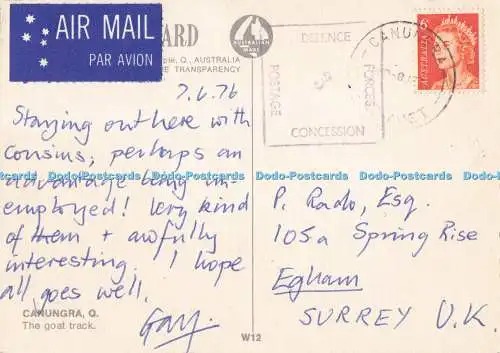 AIR MAIL
PAR AVION
CARD
AUSTRALIAN
MADE
Q., AUSTRALIA
TRANSPARENCY
DEFENCE
POSTAGE
FORCES
CONCESSION
CANUNGRA
AUSTRALIA
7.6.76
Staying out here with
cousins; perhaps an
advantage being un-
employed! Very kind
of them + awfully
interesting. I hope
all goes well.
Gay.
CANUNGRA, Q.
The goat track.
W12
P. Rado, Esq.
105a Spring Rise
Egham
SURREY U.K.
Dodo-Postcards Dodo-Postcards Dodo-Postcards Dodo-Postcards Dodo-Postcards